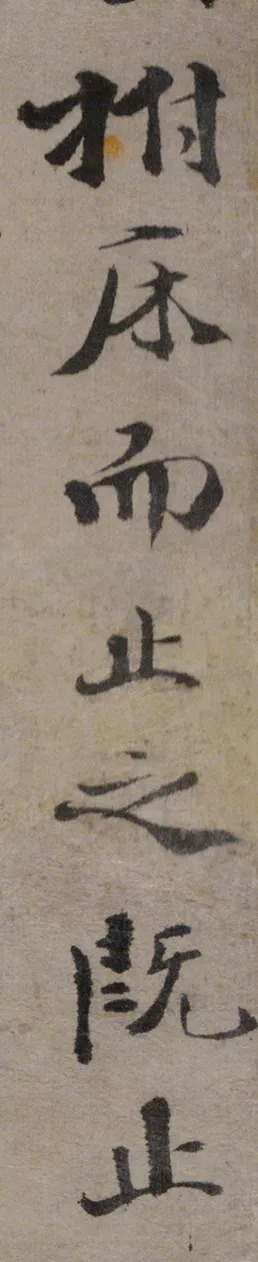 拊床而止之既止